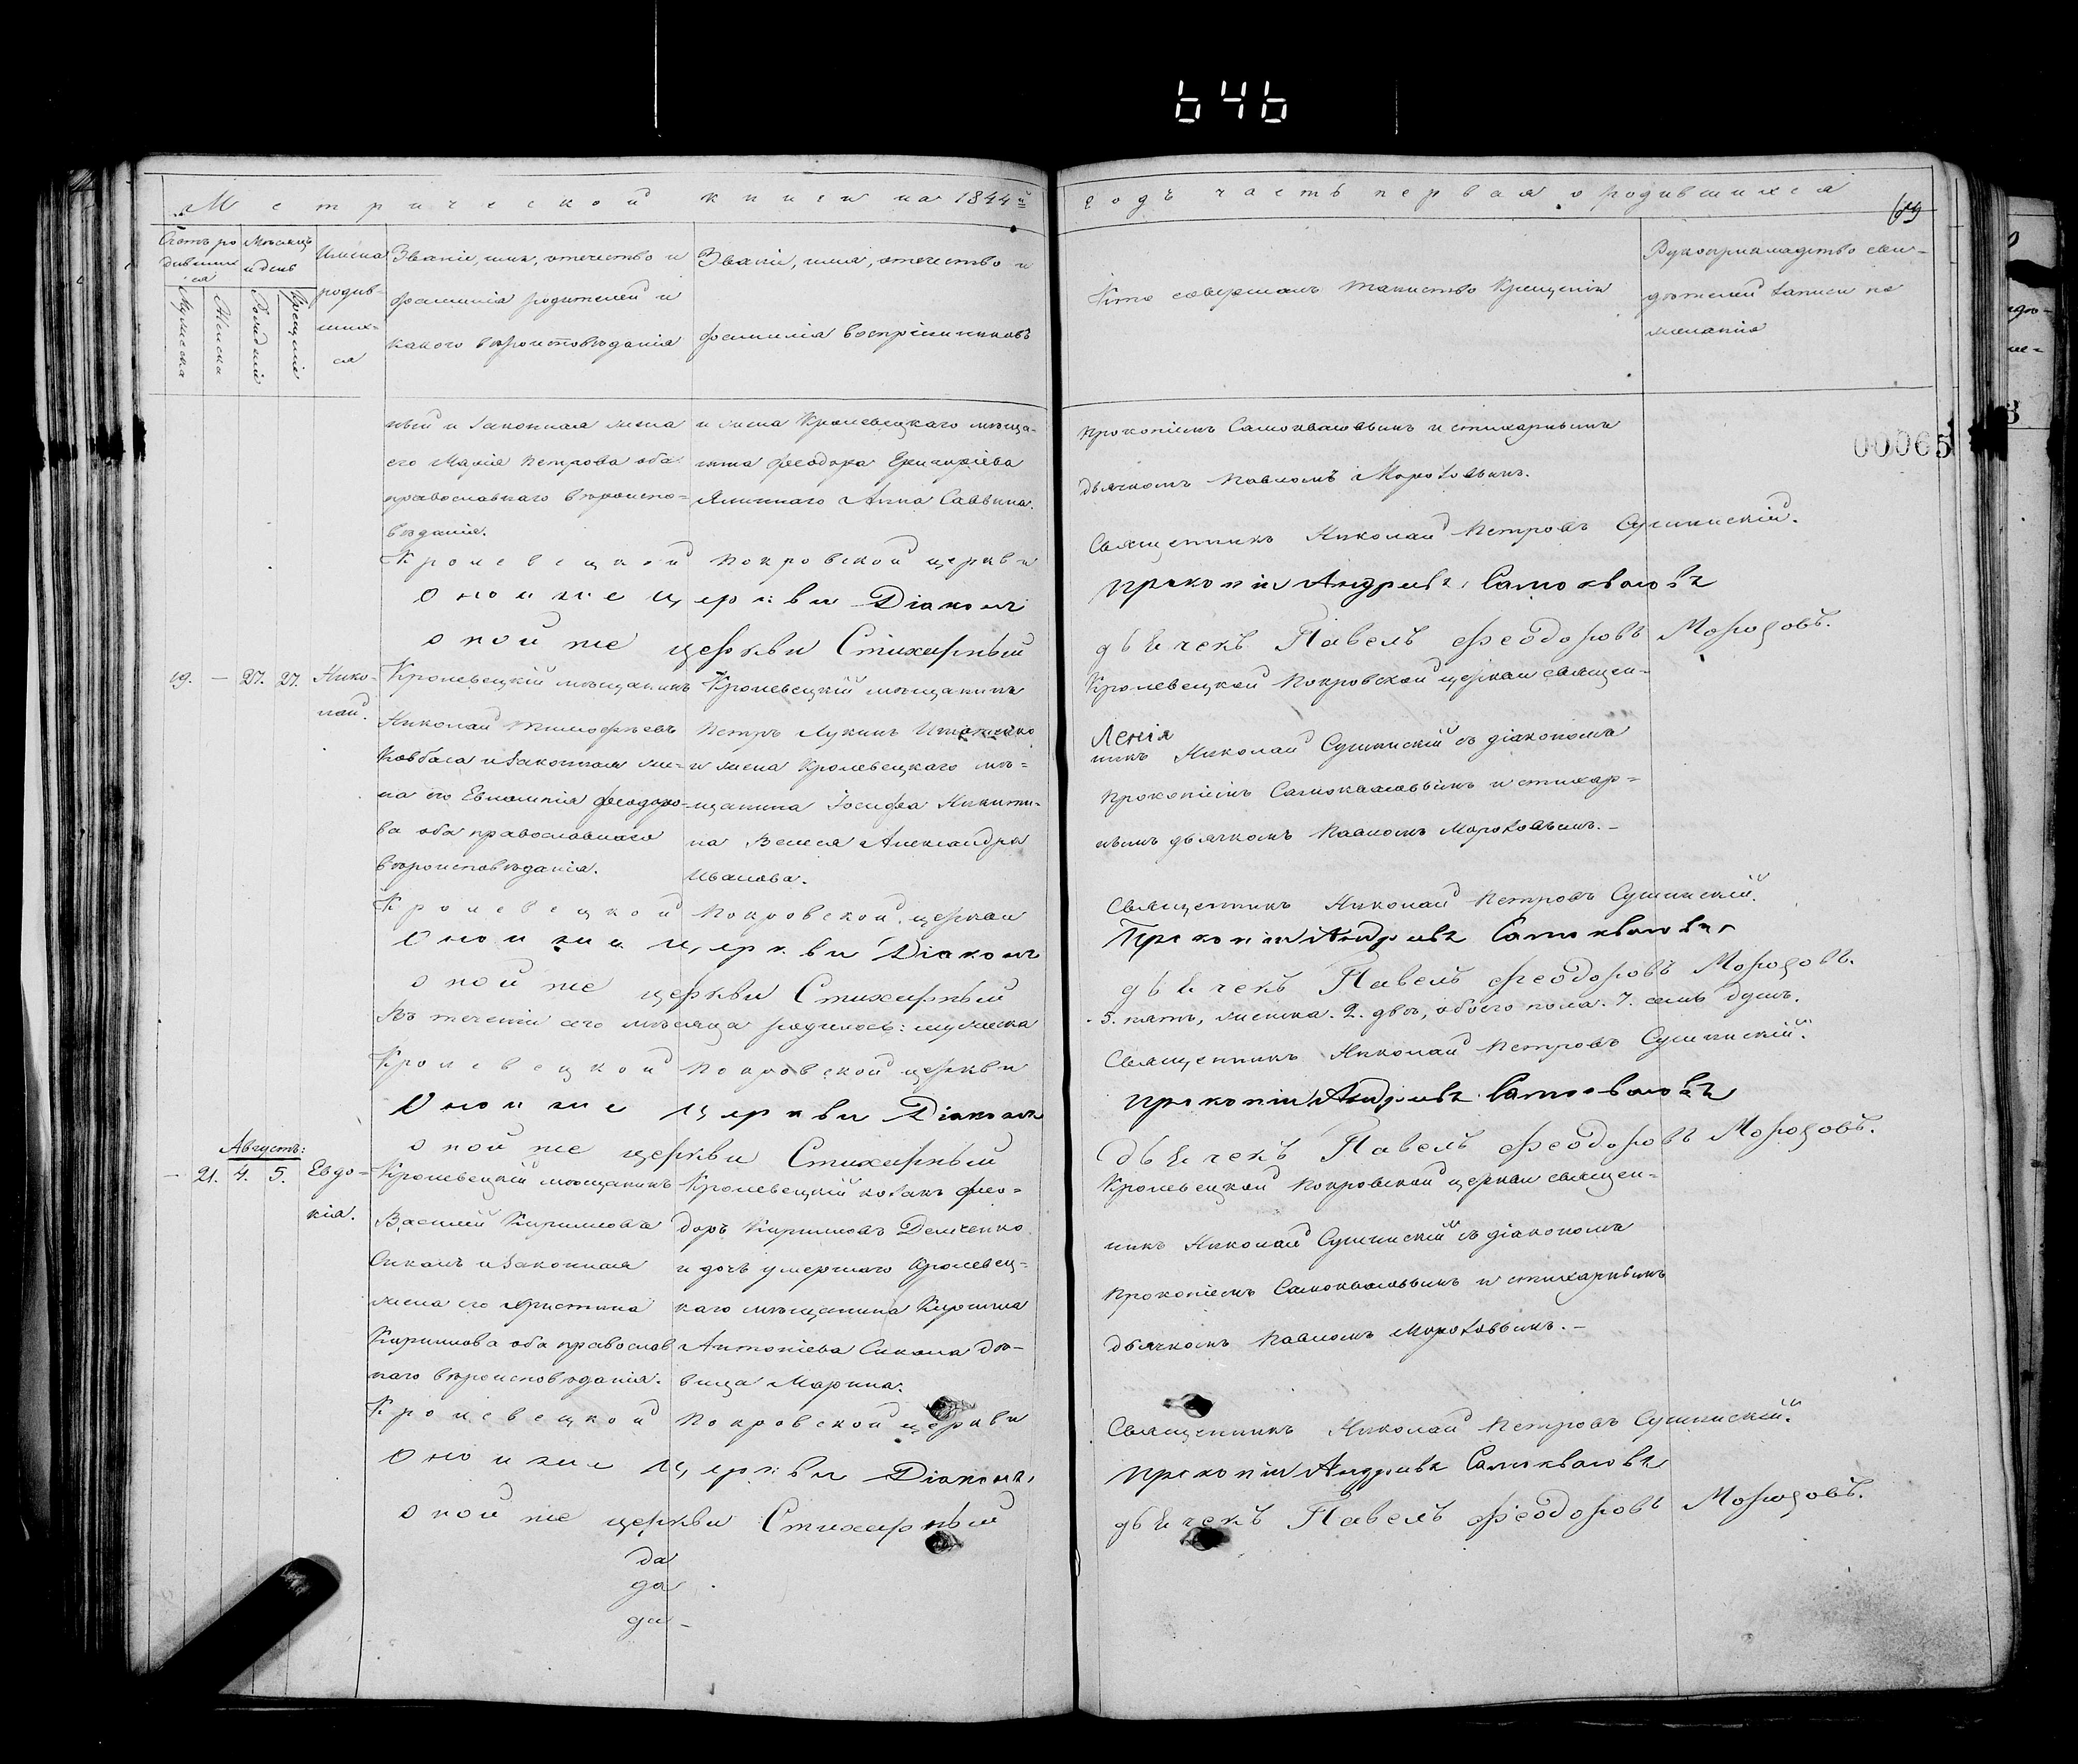 646
Метрической книги на 1844й
годъ часть первая о родившихся
69
Счетъ ро
дивших
ся
Мѣсяцъ
и день
Имена
родив-
ших-
ся
Званіе, имя, отечество и
фамилія родителей и
какого вѣроисповѣданія
Званіе, имя, отечество и
фамилія воспріемниковъ
Мужеска
Женска
Рожденія
Крещенія
Кто совершалъ таинство Крещенія
Рукоприкладство сви-
дѣтелей записи по
желанію
00065
ный и законная жена
его Марія Петрова оба
православнаго вѣроиспо-
вѣданія.
и жена Кролевецкаго мѣща-
нина Феодора Григоріева
Анна Саввина.
Прокопіемъ Самоквасовымъ и стихарнымъ
дьячкомъ Павломъ Морозовымъ.
Кролевецкой Покровской церкви
Священникъ Николай Петровъ Сушинскій.
Оной же церкви Діаконъ
Прокопій Андріевъ Самоквасовъ
оной же церкви Стихарный
дьячекъ Павелъ Феодоровъ Морозовъ.
19. — 27. 27. Нико-
лай.
Кролевецкій мѣщанинъ
Николай Тимофѣевъ
Ковбаса и законная же-
на его Евломпія Феодоро-
ва оба православнаго
вѣроисповѣданія.
Кролевецкій мѣщанинъ
Петръ Лукинъ
и жена Кролевецкаго мѣ-
щанина Іосифа Никити-
на Александра
Иванова.
Кролевецкой Покровской церкви священ-
никъ Николай Сушинскій съ діакономъ
Прокопіемъ Самоквасовымъ и стихар-
нымъ дьячкомъ Павломъ Морозовымъ.—
Кролевецкой Покровской церкви
Священникъ Николай Петровъ Сушинскій.
Оной же церкви Діаконъ
Прокопій Андріевъ Самоквасовъ
оной же церкви Стихарный
дьячекъ Павелъ Феодоровъ Морозовъ.
Въ теченіи сего мѣсяца родилось: мужеска
5. пять, женска. 2. двѣ, обоего пола. 7. семь душъ.
Кролевецкой Покровской церкви
Священникъ Николай Петровъ Сушинскій.
Оной же церкви Діаконъ
Прокопій Андріевъ Самоквасовъ
оной же церкви Стихарный
дьячекъ Павелъ Феодоровъ Морозовъ.
Августъ:
— 21. 4. 5. Евдо-
кія.
Кролевецкій мѣщанинъ
Василій Кирилловъ
Сикалъ и законная
жена его Христина
Кириллова оба православ
наго вѣроисповѣданія.
Кролевецкій козакъ Фео-
доръ Кирилловъ Демченко
и дочь умершаго Кролевец-
каго мѣщанина Кирилла
Антоніева Сикала дѣ-
вица Марина.
Кролевецкой Покровской церкви священ-
никъ Николай Сушинскій съ діакономъ
Прокопіемъ Самоквасовымъ и стихарнымъ
дьячкомъ Павломъ Морозовымъ.—
Кролевецкой Покровской церкви
Священникъ Николай Петровъ Сушинскій.
Оной же церкви Діаконъ
Прокопій Андріевъ Самоквасовъ
оной же церкви Стихарный
дьячекъ Павелъ Феодоровъ Морозовъ.
да
да
да